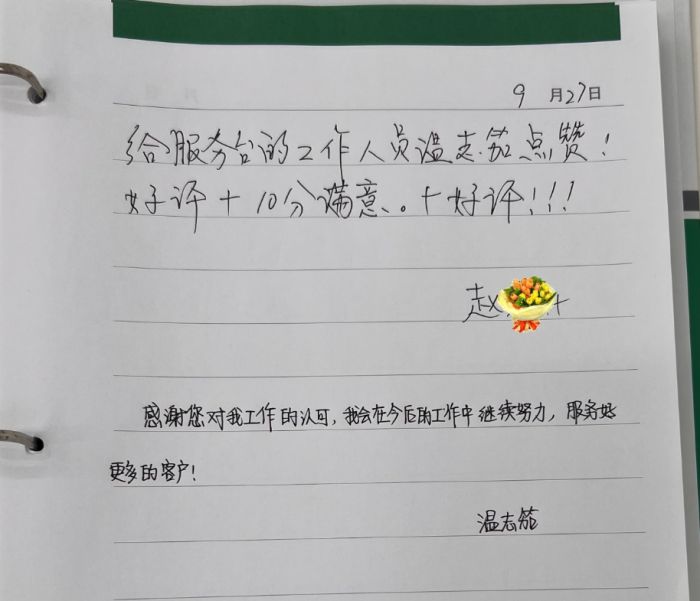 9月27日
给服务台的工作人员温志茹点赞!
好评+10分满意、。+好评!!!
赵
感谢您对我工作的认可,我会在今后的工作中继续努力,服务好
更多的客户!
温志茹